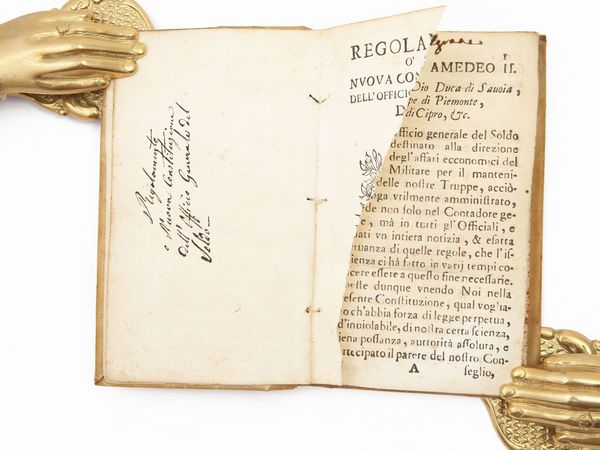 Regolamento
o Nuova Constituzione
dell'Officio Generale del
Soldo
REGOLA
O'
NVOVA CON
DELL'OFFICIO
AMEDEO II.
Dio Duca di Sauoia,
pe di Piemonte,
di Cipro, &c.
fficio generale del Soldo
destinato alla direzione
degl'affari economici del
Militare per il manteni-
delle nostre Truppe, acciò-
oga vtilmente amministrato,
de non solo nel Contadore ge-
e, mà in tutti gl'Officiali, e
ati vn intiera notizia, & esatta
etuanza di quelle regole, che l'is-
ienza ci hà fatto in varij tempi co-
cere essere a questo fine necessarie.
este dunque vnendo Noi nella
esente Constituzione, qual vogli-
o ch'abbia forza di legge perpetua,
d'inuiolabile, di nostra certa scienza,
iena possanza, auttorità assoluta, e
rtecipato il parere del nostro Con-
A seglio,